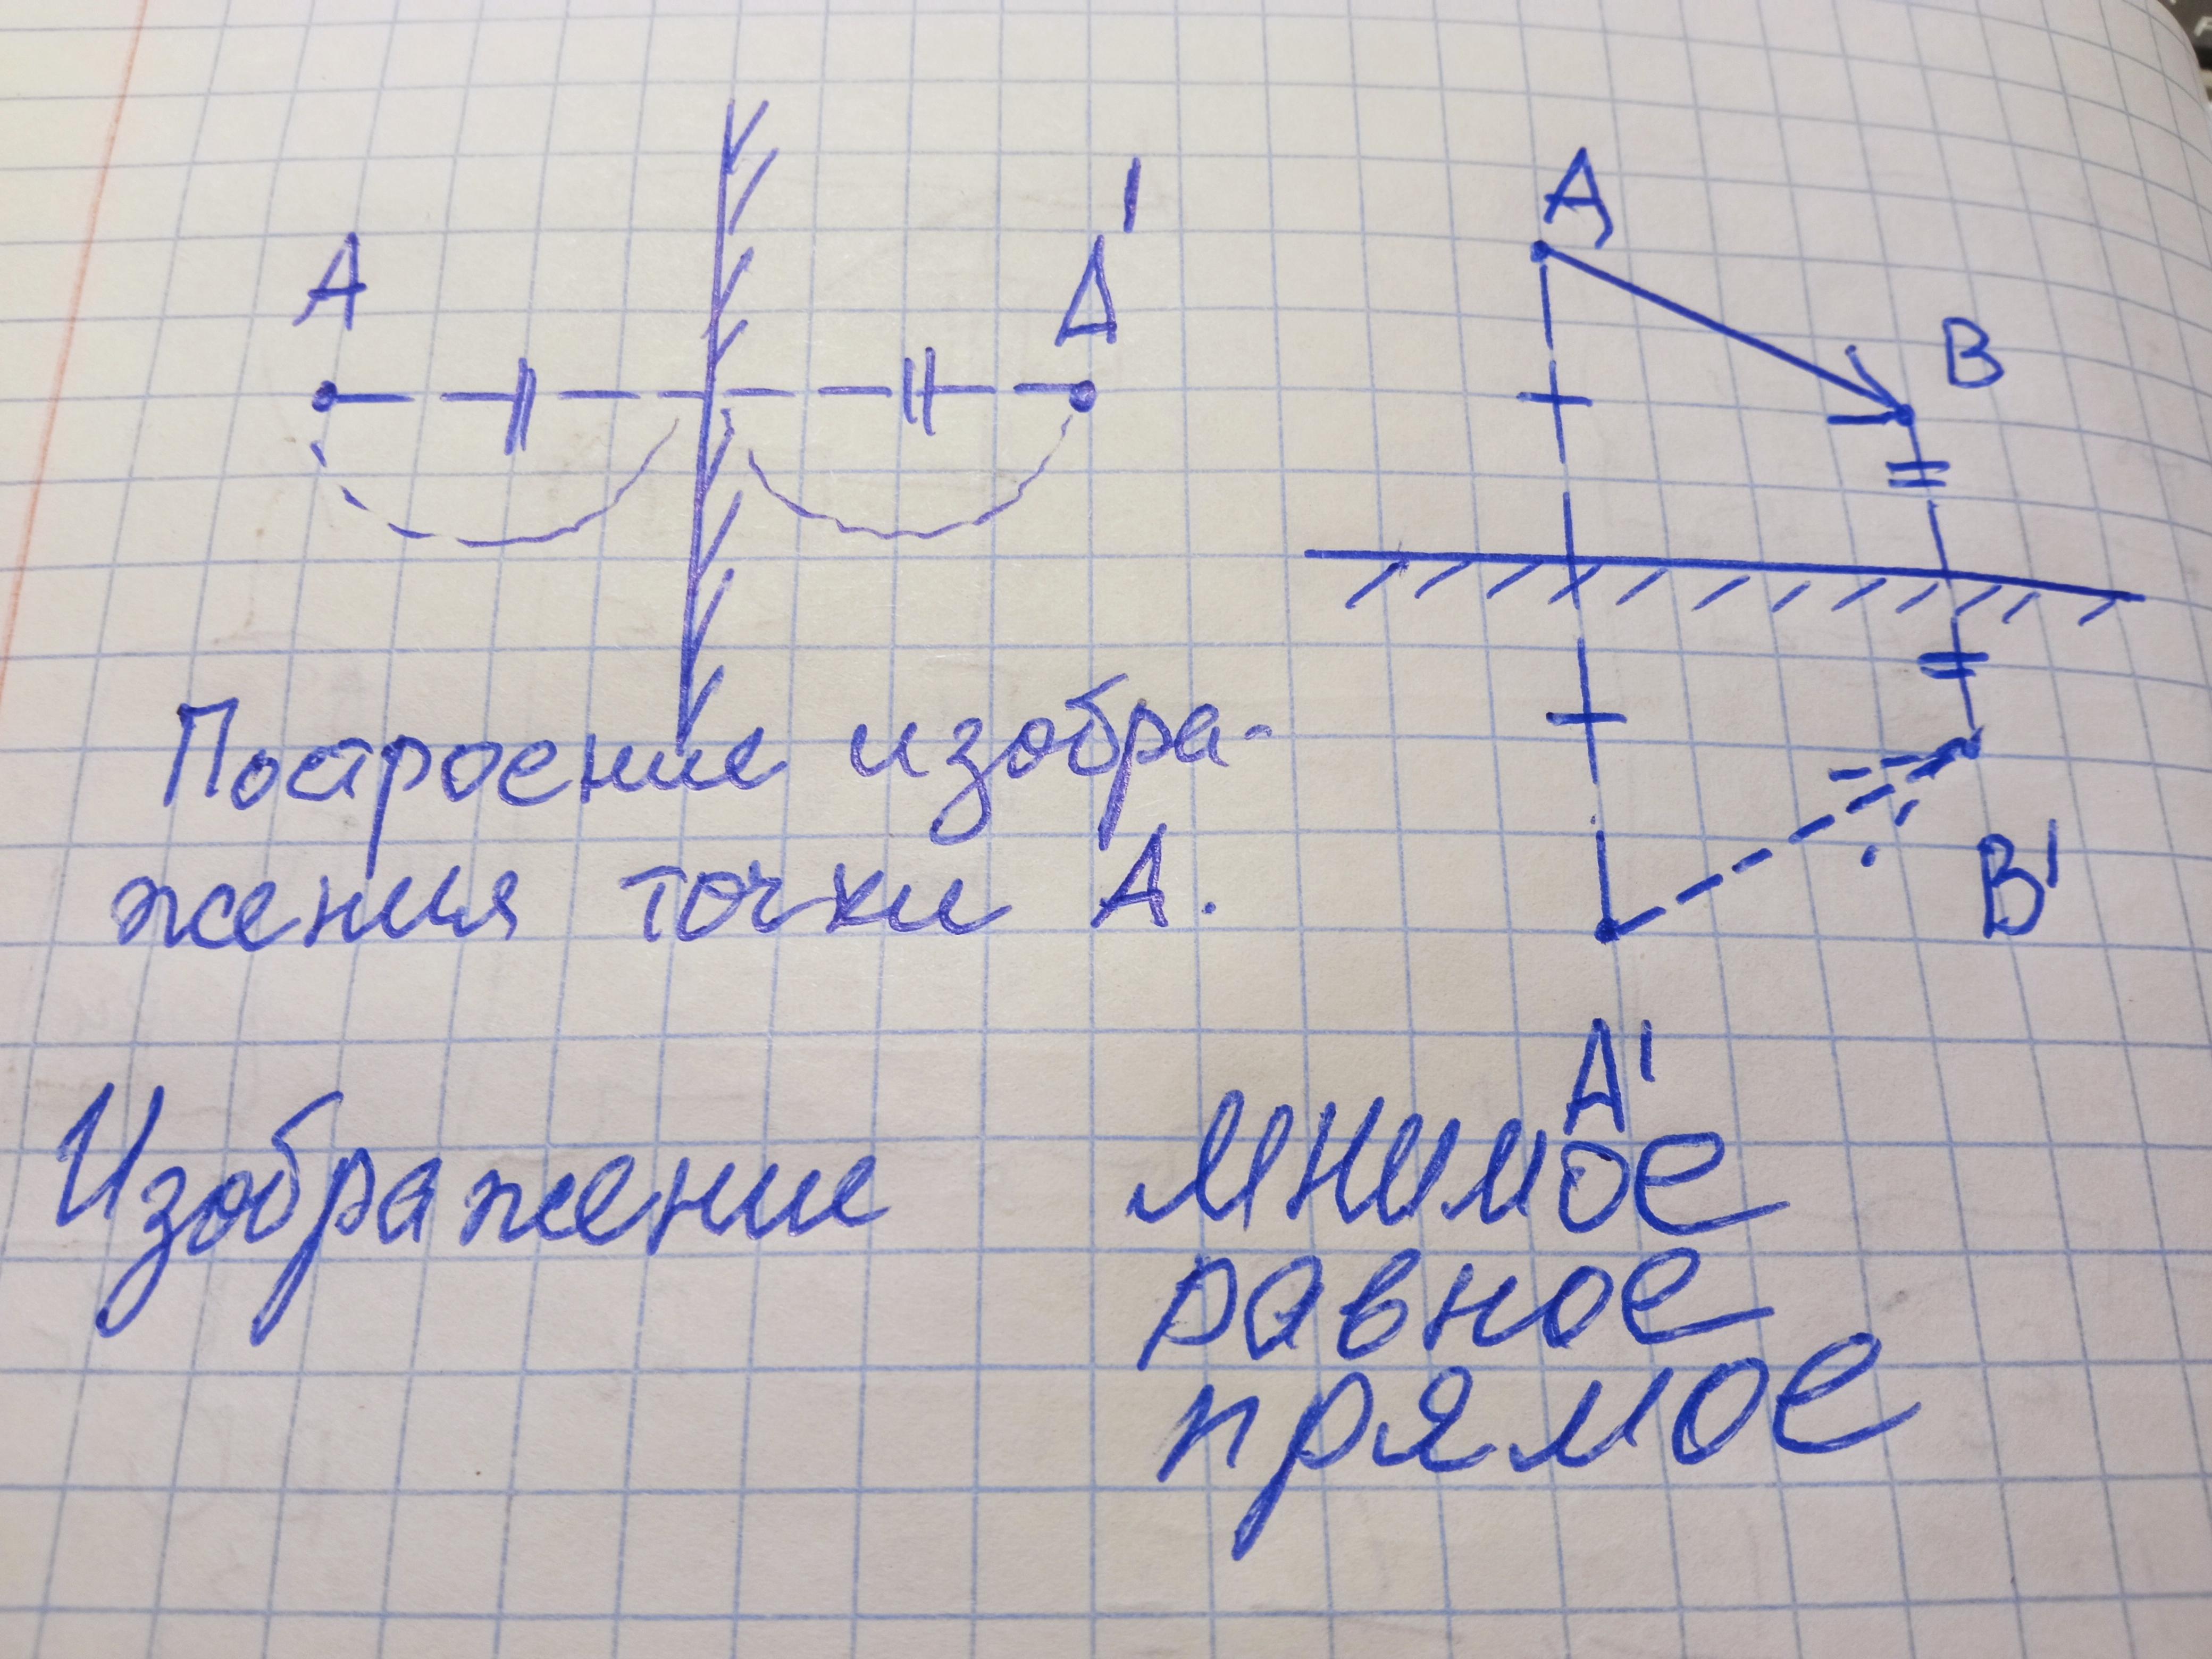 A
A'
A
B
Построение изобра-
жения точки А.
B'
A'
Изображение мнимое
равное
прямое